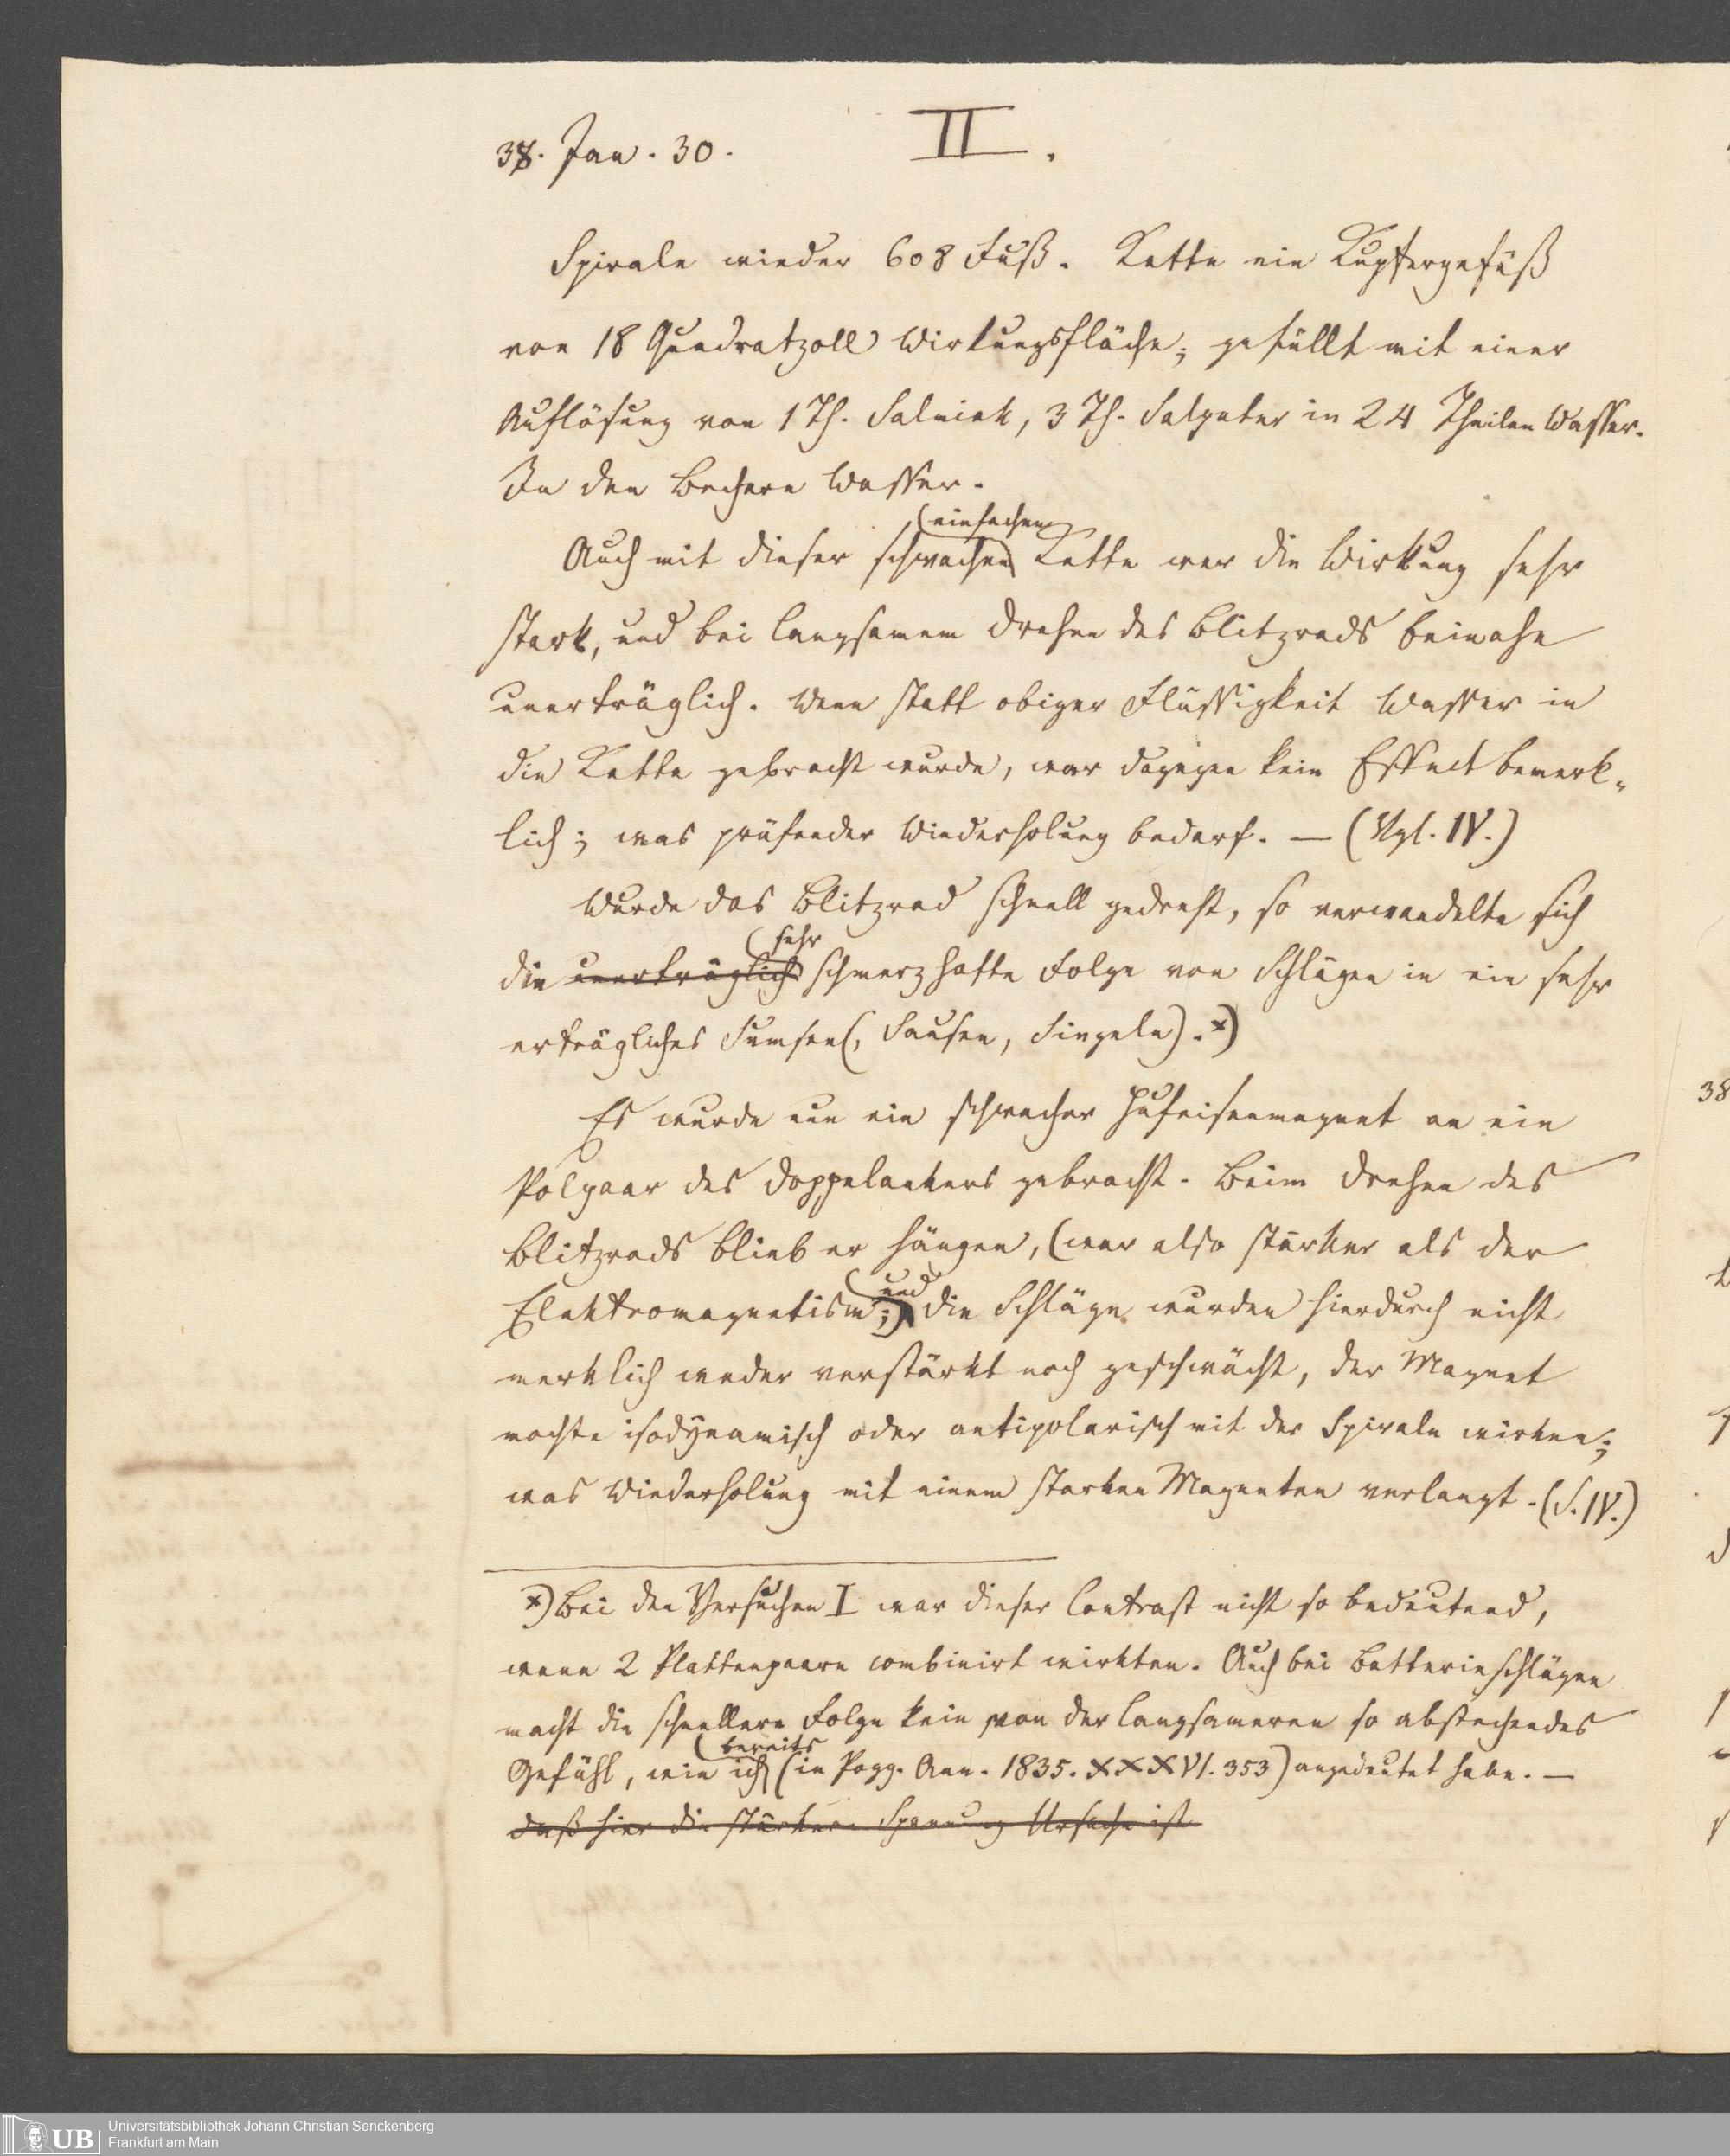 38. Jan. 30.
II.
Spirale wieder 608 Fuß. Kette ein Kupfergefäß
von 18 Quadratzoll Wirkungsfläche, gefüllt mit einer
Auflösung von 1 Th. Salmiak, 3 Th. Salpeter in 24 Theilen Wasser.
In den Bechern Wasser.
(einfachen)
Auch mit dieser schwachen Kette war die Wirkung sehr
stark, und bei langsamem Drehen des Blitzrads beinahe
unerträglich. Wenn statt obiger Flüssigkeit Wasser in
die Kette gebracht wurde, war dagegen kein Effect bemerk-
lich; was prüfender Wiederholung bedarf. — (Vgl. IV.)
Wurde das Blitzrad schnell gedreht, so verwandelte sich
sehr
die unerträglich schmerzhafte Folge von Schlägen in ein sehr
erträgliches Sumsen (, Sausen, Singeln). *)
Es wurde nun ein schwacher Hufeisenmagnet an ein
Polpaar des Doppelankers gebracht. Beim Drehen des
Blitzrads blieb er hängen, (war also stärker als der
und
Elektromagnetism;) die Schläge wurden hierdurch nicht
merklich weder verstärkt noch geschwächt, der Magnet
mochte isodynamisch oder antipolarisch mit der Spirale wirken;
was Wiederholung mit einem starken Magneten verlangt. (S. IV.)
*) Bei den Versuchen I war dieser Contrast nicht so bedeutend,
wenn 2 Plattenpaare combinirt wirkten. Auch bei Batterieschlägen
macht die schnellere Folge kein von der langsameren so abstechendes
bereits
Gefühl, wie ich (in Pogg. Ann. 1835. XXXVI. 353) angedeutet habe. —
daß hier die stärkere Spannung Ursache ist
38
UB Universitätsbibliothek Johann Christian Senckenberg
Frankfurt am Main